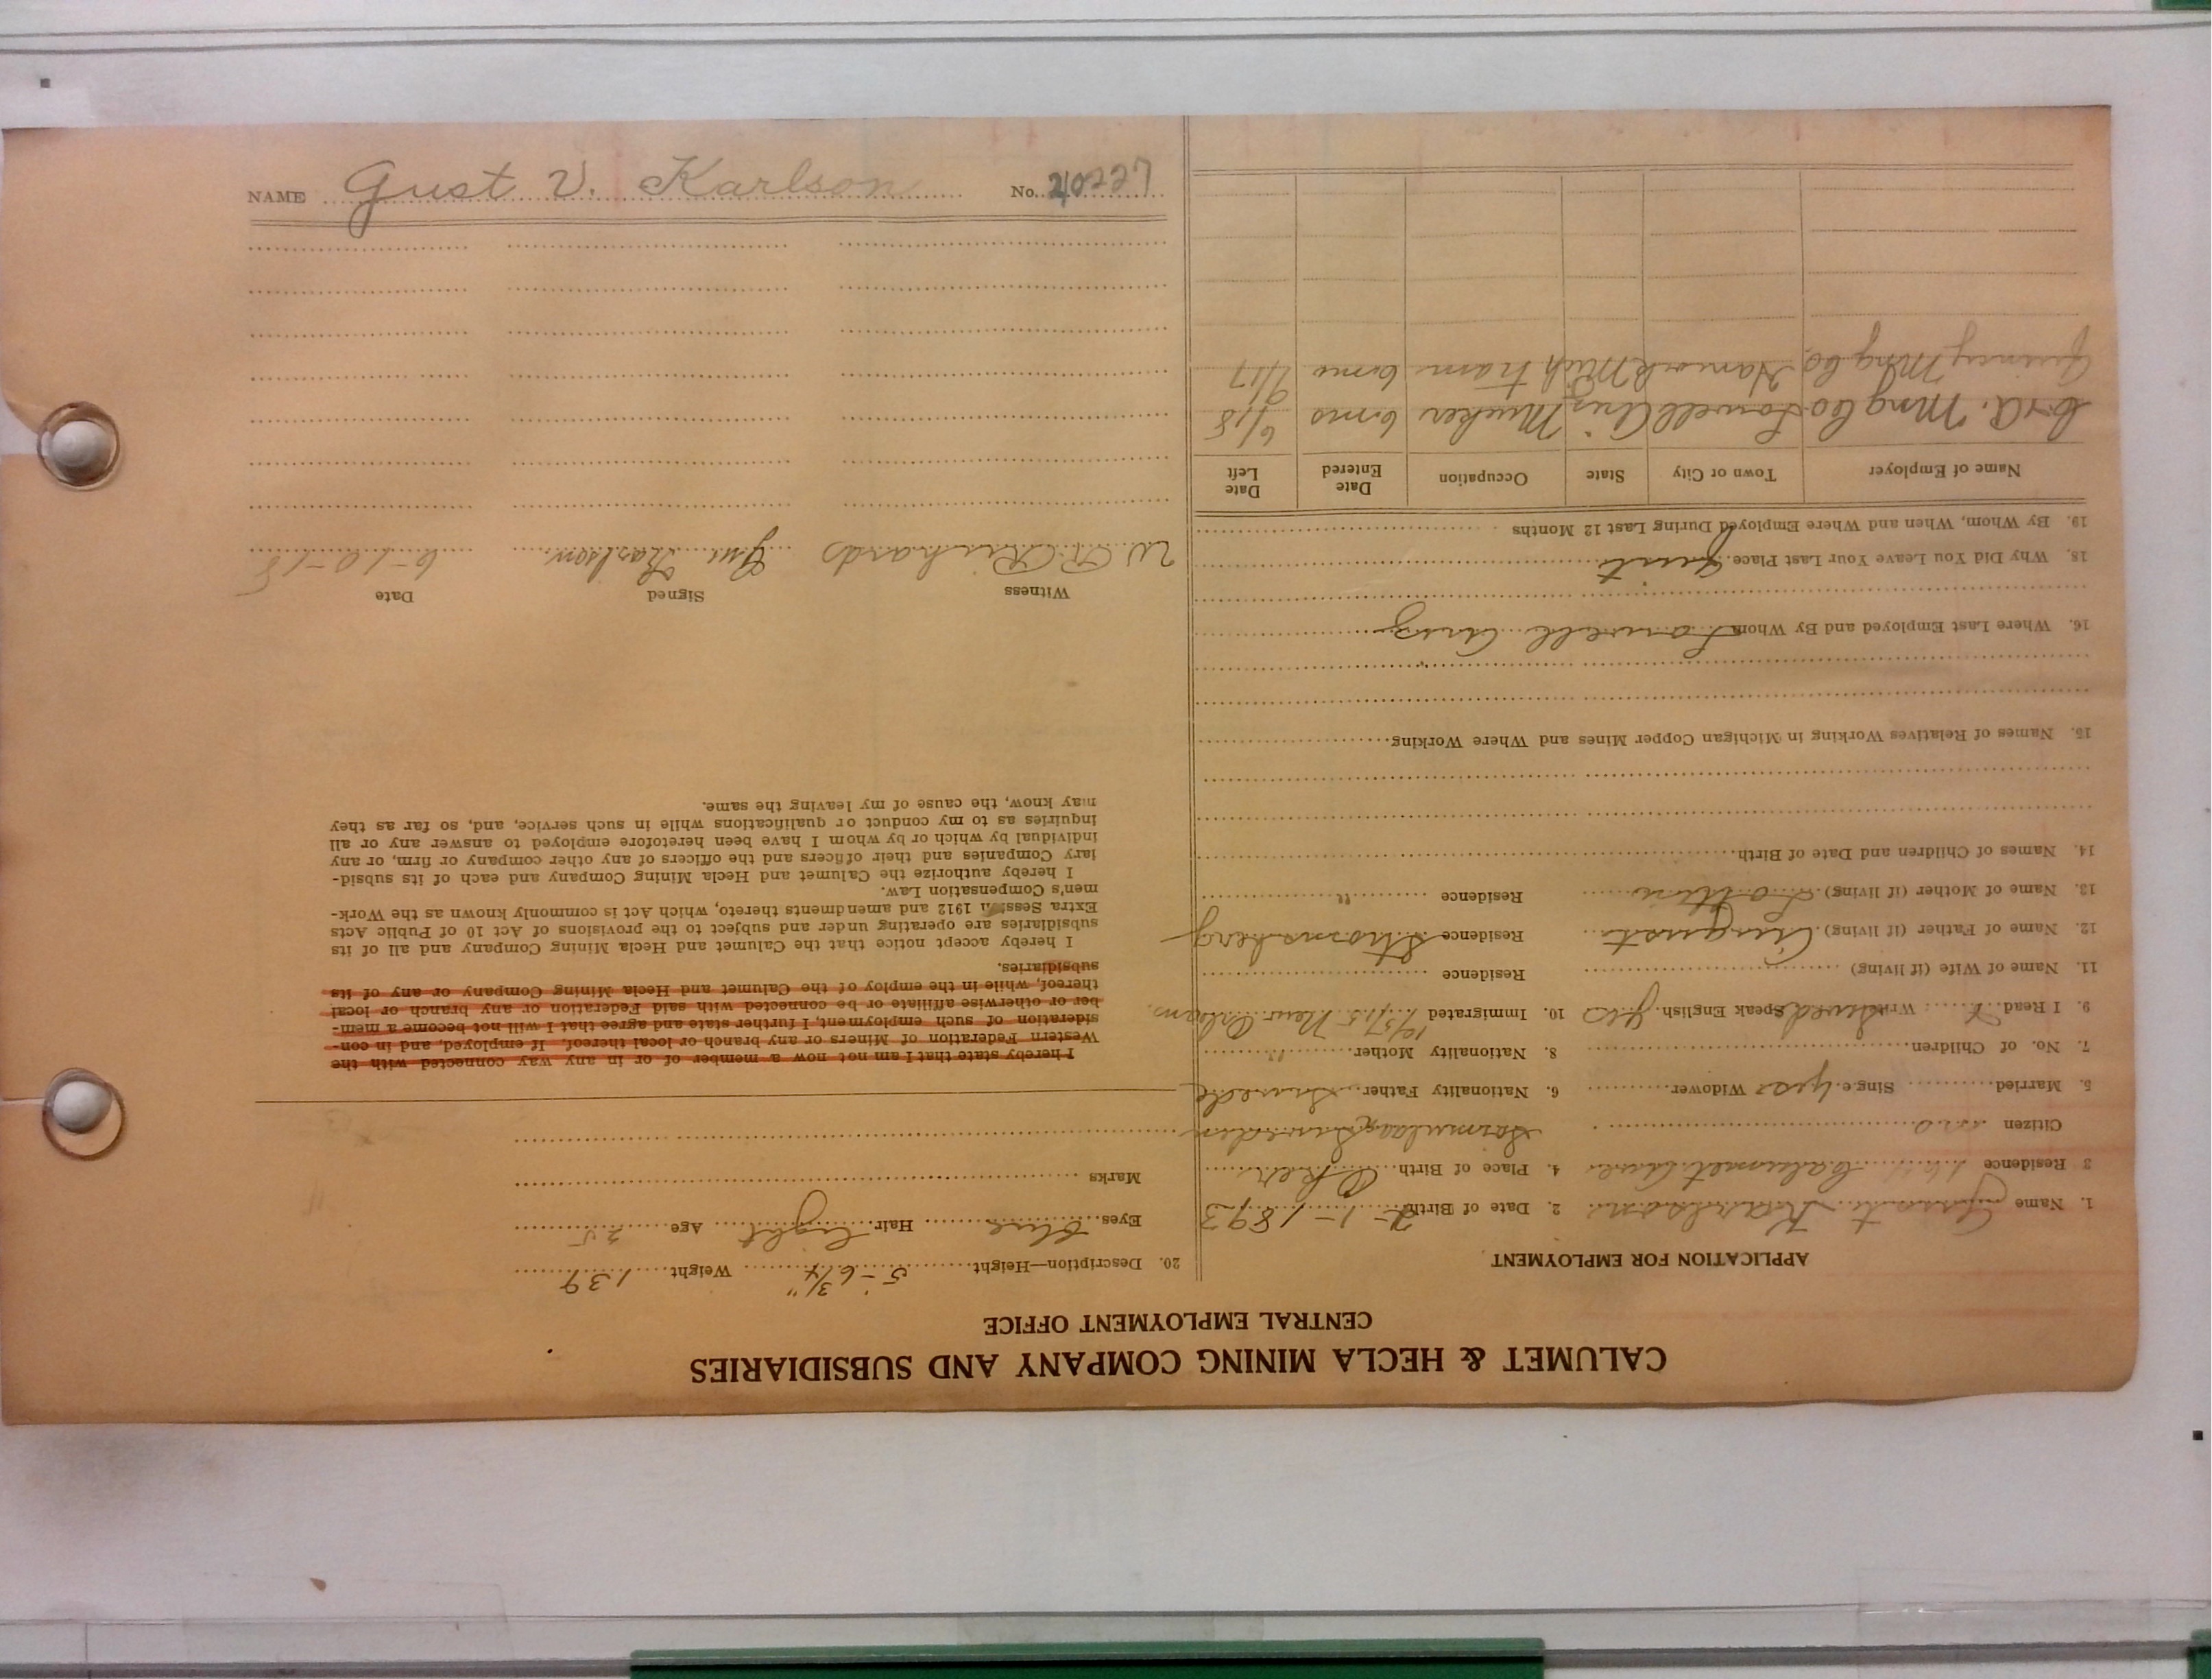 CALUMET & HECLA MINING COMPANY AND SUBSIDIARIES
CENTRAL EMPLOYMENT OFFICE
APPLICATION FOR EMPLOYMENT
1. Name Gust Karlson 2. Date of Birth 1-1893
3 Residence Calumet 4. Place of Birth Oker
Citizen no Sweden
5. Married Single yes Widower 6. Nationality Father Swede
7. No. of Children 8. Nationality Mother "
9. I Read Write Swed Speak English yes 10. Immigrated New Orleans
11. Name of Wife (if living) Residence
12. Name of Father (if living) August Residence
13. Name of Mother (if living) Residence "
14. Names of Children and Date of Birth
15. Names of Relatives Working in Michigan Copper Mines and Where Working
16. Where Last Employed and By Whom Lowell Ariz
18. Why Did You Leave Your Last Place. quit
19. By Whom, When and Where Employed During Last 12 Months
Name of Employer Town or City State Occupation Date Entered Date Left
C+A. Mng Co Lowell Aris Mucker 6 mo 6/18
Quincy Mng Co. Hancock Mich tram 6 mo 9/17
20. Description—Height 5'-6 3/4" Weight 139
Eyes. blue Hair. light Age 25
Marks
I hereby state that I am not now a member of or in any way connected with the
Western Federation of Miners or any branch or local thereof. If employed, and in con-
sideration of such employment, I further state and agree that I will not become a mem-
ber or otherwise affiliate or be connected with said Federation or any branch or local
thereof, while in the employ of the Calumet and Hecla Mining Company or any of its
subsidiaries.
I hereby accept notice that the Calumet and Hecla Mining Company and all of its
subsidiaries are operating under and subject to the provisions of Act 10 of Public Acts
Extra Session 1912 and amendments thereto, which Act is commonly known as the Work-
men's Compensation Law.
I hereby authorize the Calumet and Hecla Mining Company and each of its subsid-
iary Companies and their officers and the officers of any other company or firm, or any
individual by which or by whom I have been heretofore employed to answer any or all
inquiries as to my conduct or qualifications while in such service, and, so far as they
may know, the cause of my leaving the same.
Witness Signed Date
W R Richards Gus Karlson 6-10-18
NAME Gust V. Karlson No. 20227